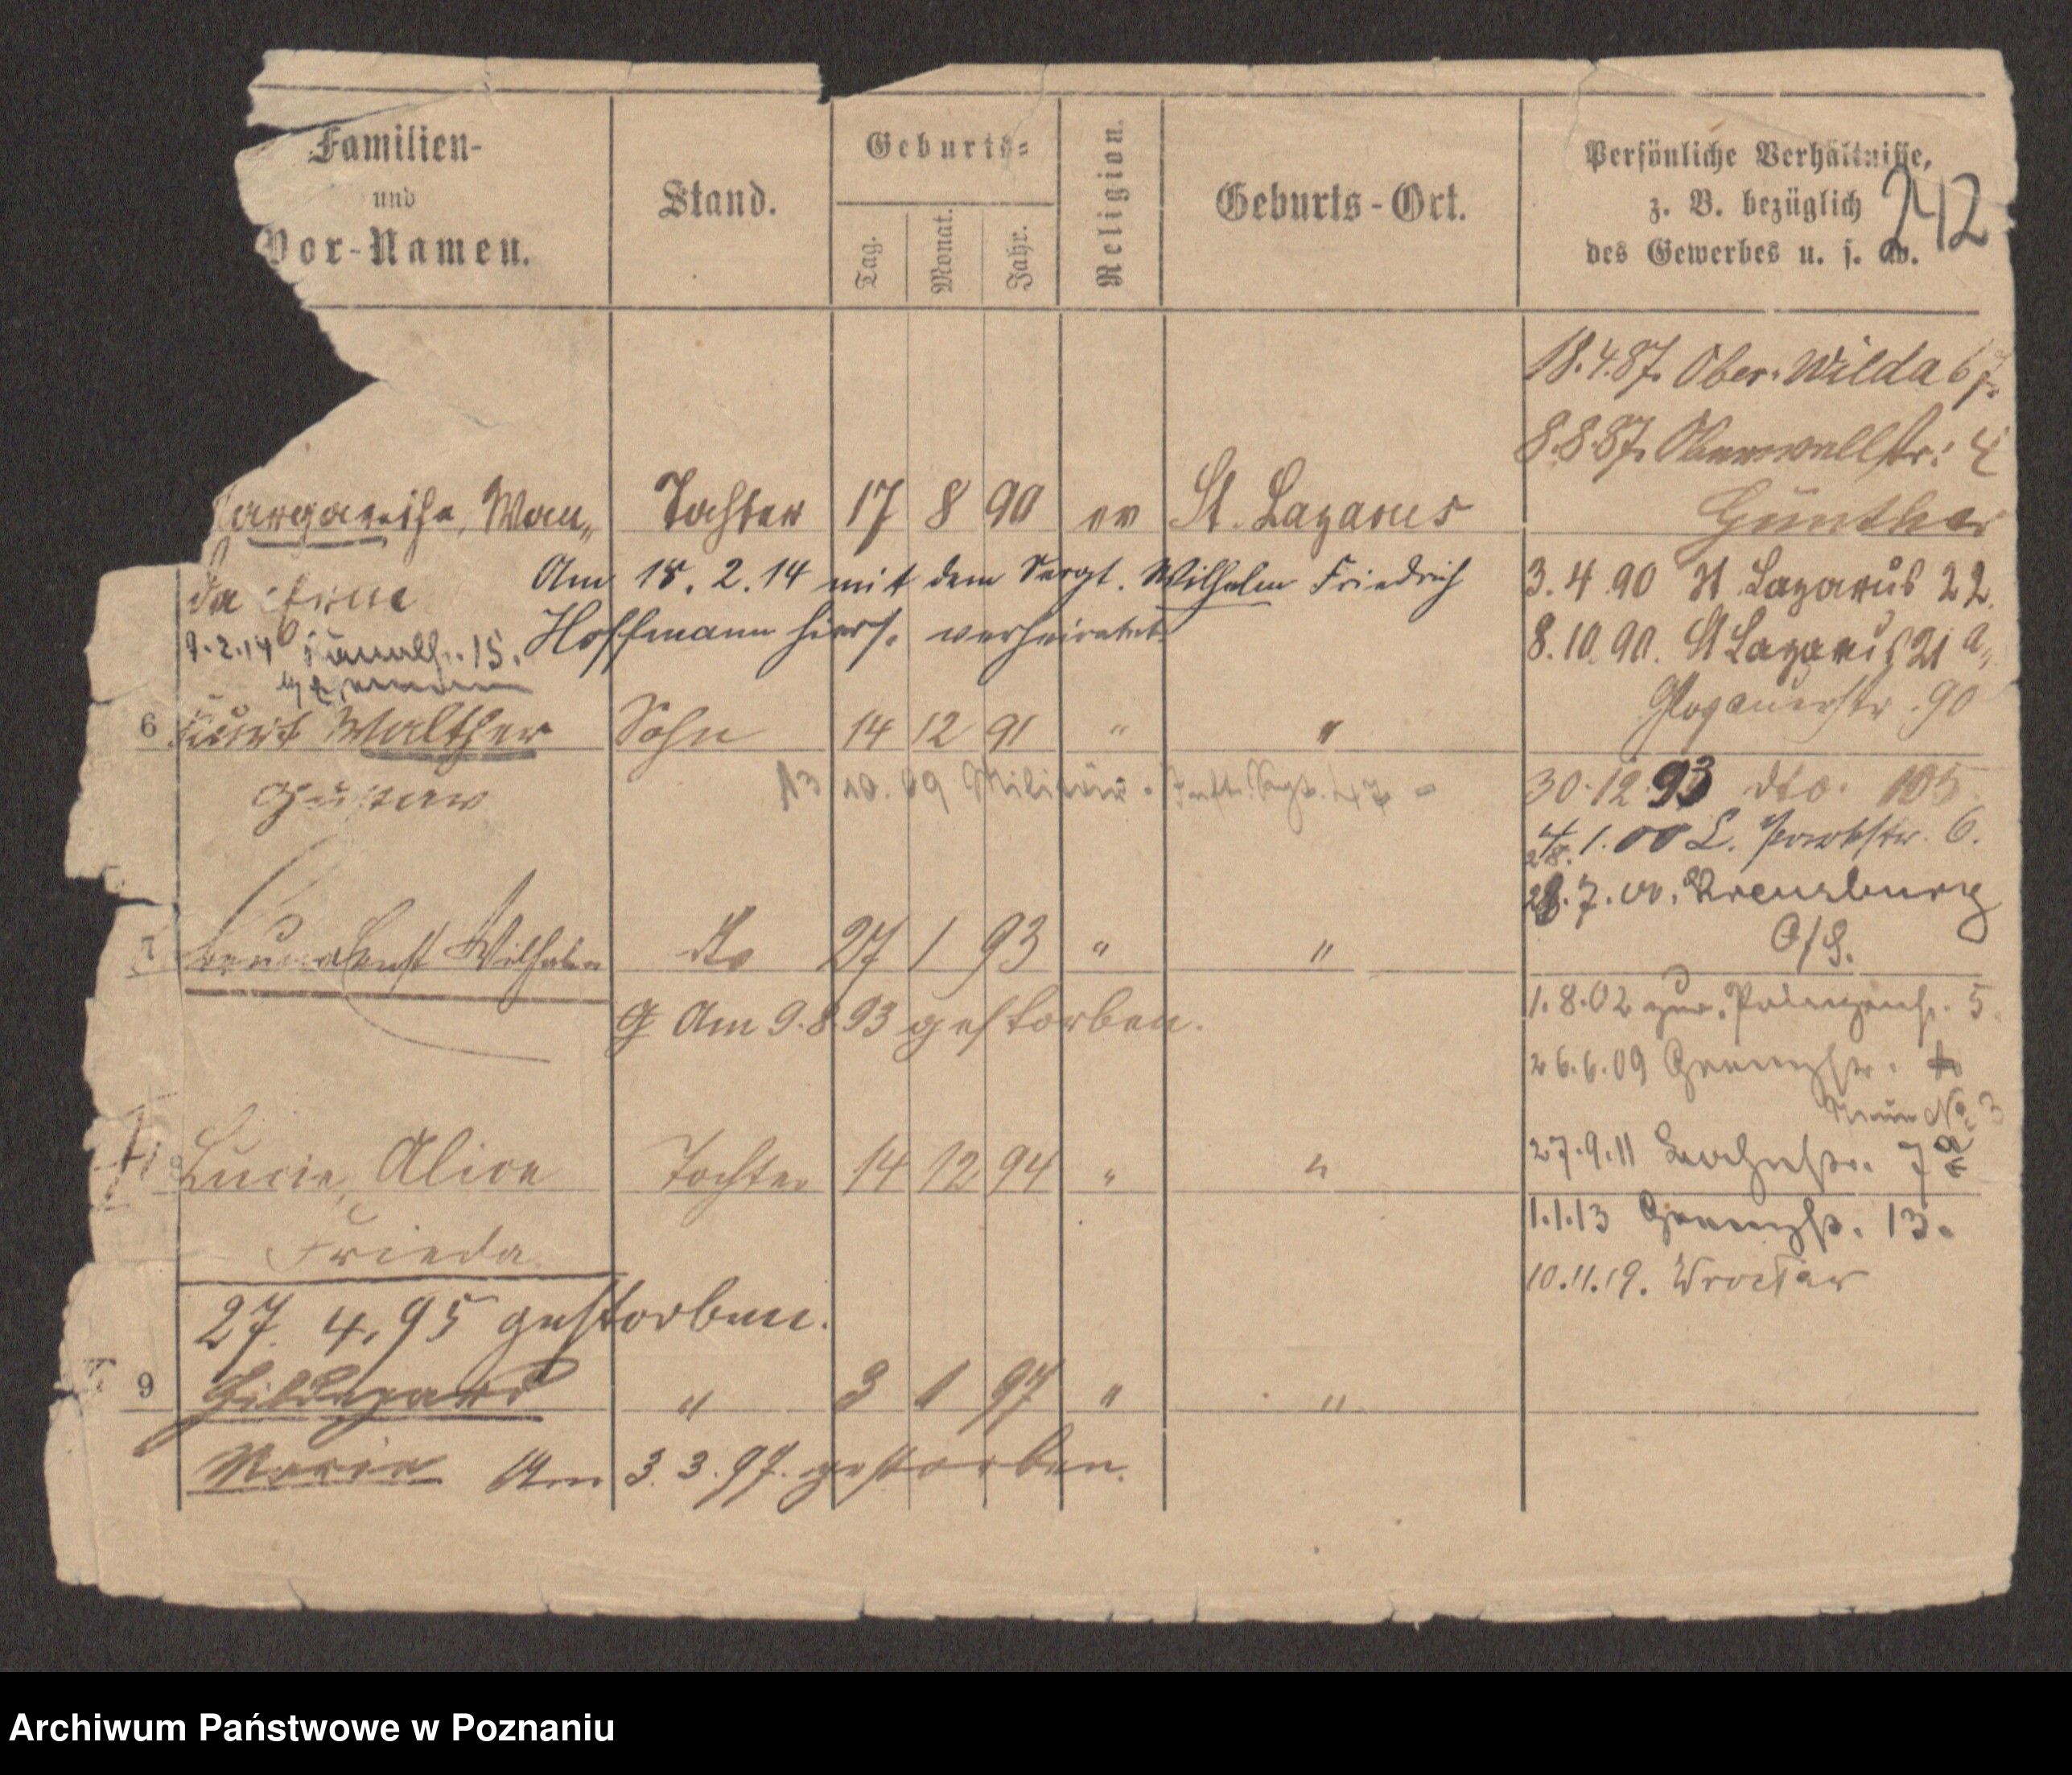 Familien-
und
Vor-Namen.
Stand.
Geburts-
Tag.
Monat.
Jahr.
Religion.
Geburts-Ort.
Persönliche Verhältnisse,
z. B. bezüglich
des Gewerbes u. s. w.
242
18.4.87. Ober-Wilda 67.
8.8.87. Oberwallstr: 4
Günther
argarethe, Wan„ Tochter 17 8 90 ev St. Lazarus
da
Am 15. 2. 14 mit dem Sergt. Wilhelm Friedrich
Hoffmann hiers. verheiratet.
9.2.14 15.
3.4.90 St Lazarus 22.
8.10.90. St Lazarus 21 a,
Glogauerstr. 90
6 Kurt Walther Sohn 14 12 91 " "
Gustaw
13 10. 09 Militär - Inft. Rgt. 47 -
30.12.93 dto. 105.
1.00 L. Parkstr. 6.
28.7.00. Kreuzburg
O/S.
7 Bruno Ernst Wilhelm dto 27 1 93 " "
Am 9.8.93 gestorben.
1.8.02 zur. Prinzenstr. 5.
26.6.09 Grenzstr.
Neue No 3
Lucie, Alice Tochter 14 12 94 " "
Frieda
27. 4. 95 gestorben.
27.9.11 7
1.1.13 Grenzstr. 13.
10.11.19. Wrocław
9 Hildegard " 3 1 97 " "
Marie Am 3. 3. 97. gestorben.
Archiwum Państwowe w Poznaniu